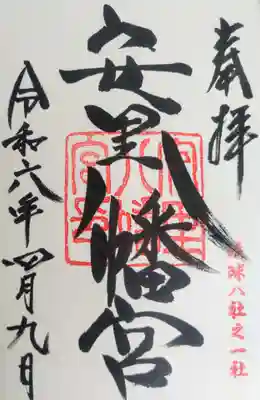 奉拝
琉球八社之一社
安里八幡宮
令和六年四月九日